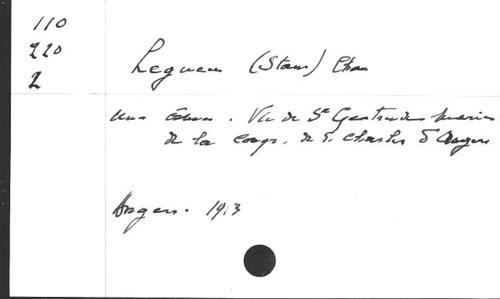 110
220
2
Legueu (Stan) Chan
Une âme. Vie de Sr Gertrude
de la Congr. de S. Charles d'Angers
Angers. 1913